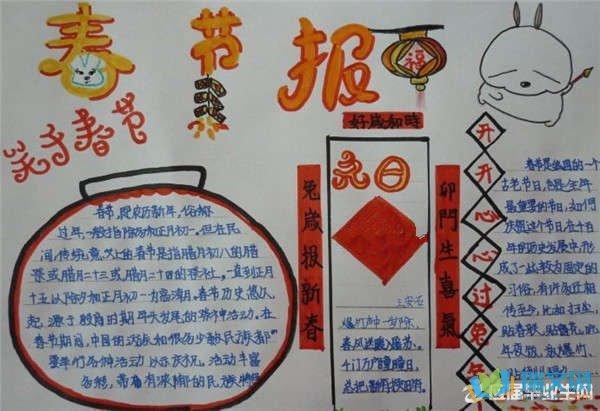 春节报
福
关于春节
好歲如時
兔歲报新春
卯門生喜氣
元日
王安石
爆竹声中一岁除，
春风送暖入屠苏。
千门万户曈曈日，
总把新桃换旧符。
开开心心过兔年
春节，是农历新年，俗称
过年，一般指除夕和正月初一。但在民
间，传统意义上的春节是指腊月初八的腊
祭或腊月二十三或腊月二十四的祭灶，一直到正月
十五，以除夕和正月初一为高潮。春节历史悠久，
起源于殷商时期年头岁尾的祭神活动。在
春节期间，中国的汉族和很多少数民族都
要举行各种活动以示庆祝。活动丰富
多彩，带有浓郁的民族特
春节是我国的一个
古老节日，也是全年
最重要的节日，如何
庆祝这个节日，在千百
年的历史发展中，形
成了一些较为固定的
习俗，有许多还相
传至今，比如扫尘，
贴春联，贴窗花，吃
年夜饭，放爆竹，
毕业生网